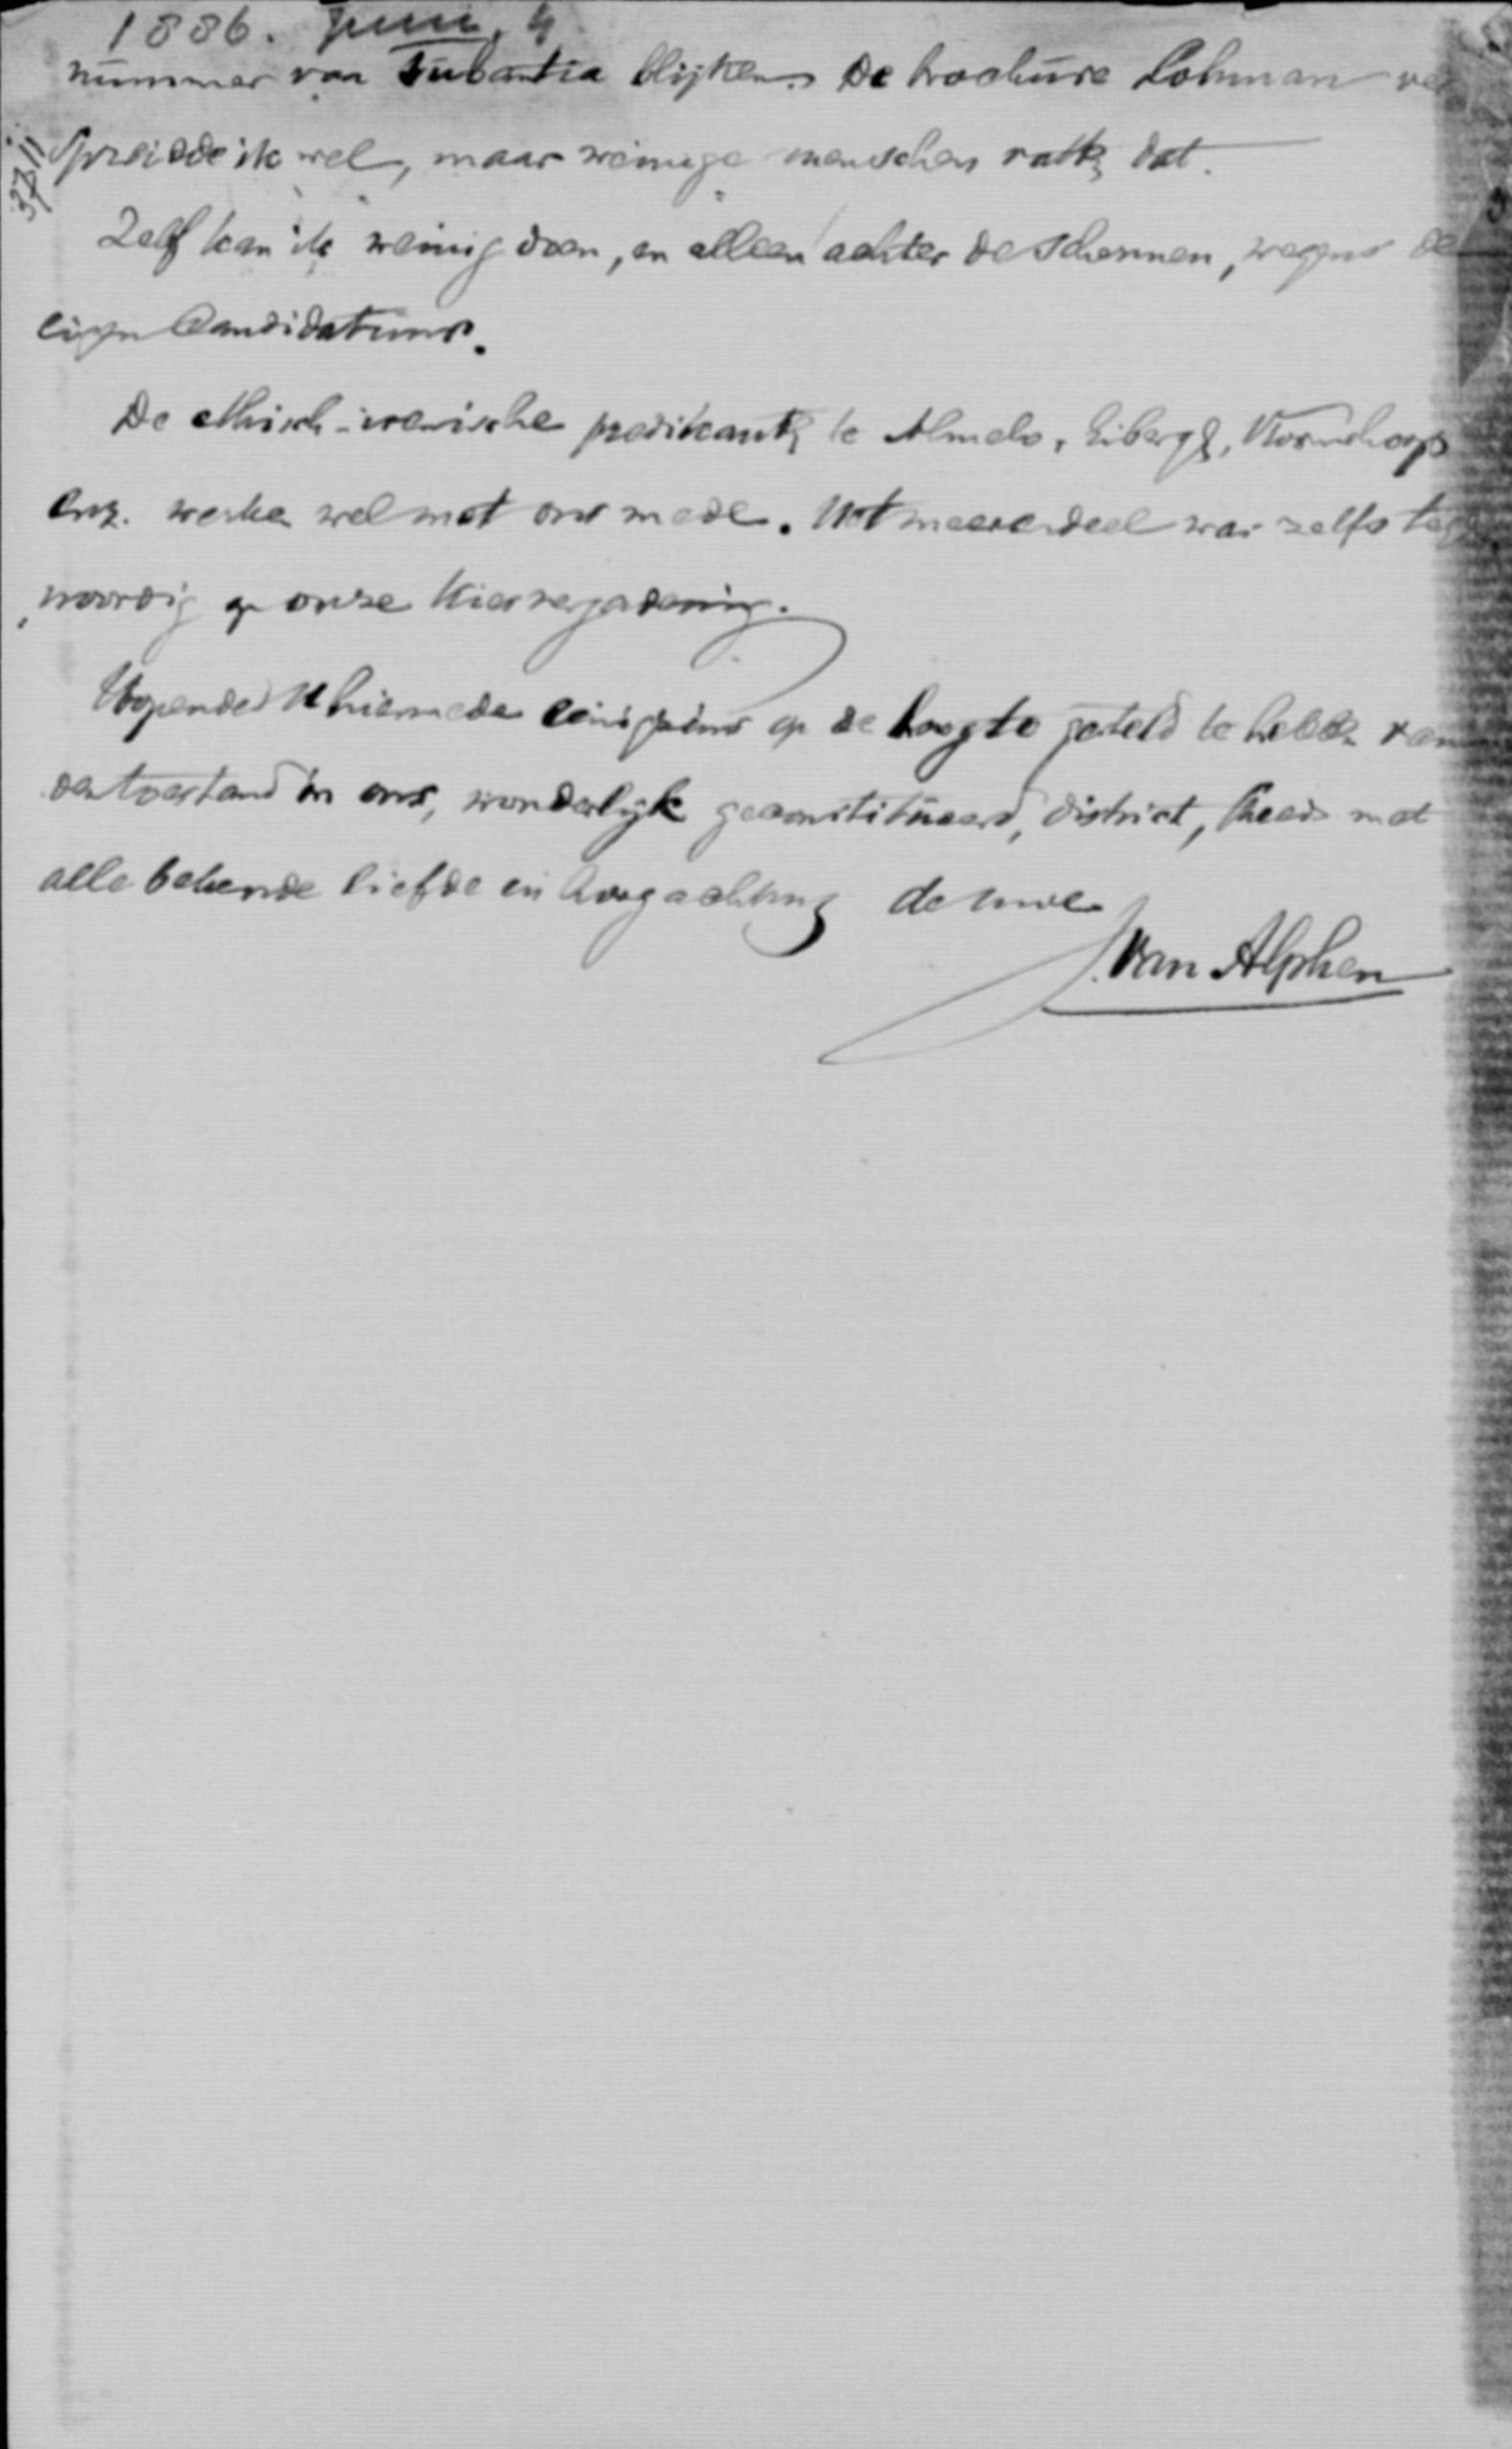 1886. Juni, 4
nummer van Tubantia blijken. De brochure Lohman ver
3711
spreidde ik wel, maar weinige menschen vatten dat.
Zelf kan ik weinig doen, en alleen achter de schermen, wegens de
eigen Candidatuur.
De ethisch-irenische predikanten te Almelo, Sibergh, Vroomshoop
enz. werken wel met ons mede. Het meerendeel was zelfs teg
woordig op onze Kiesvergadering.
Hopende U hiermede eenigszins op de hoogte gesteld te hebben van
den toestand in ons, wonderlijk geconstitueerd, district, steeds met
alle bekende liefde en hoogachting de uwe
J. van Alphen